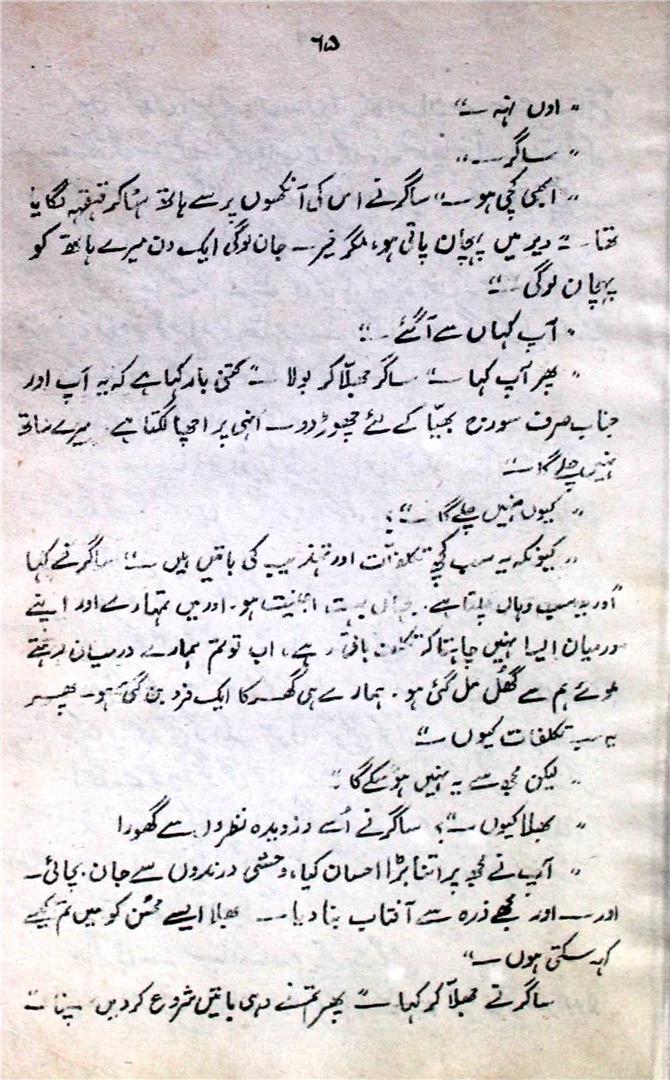 ۶۵
" اوں انہہ ــ"
" ساگر ــ"
" ابھی کچی ہو ــ" ساگر نے اس کی آنکھوں پر سے ہاتھ ہٹا کر قہقہہ لگایا
تھا ــ" دیر میں پہچان پاتی ہو، مگر خیر ــ جان لوگی ایک دن میرے ہاتھ کو
پہچان لوگی ــ"
" آپ کہاں سے آ گئے ــ"
" پھر آپ کہا ــ" ساگر جھلّا کر بولا ــ" کتنی بار کہا ہے کہ یہ آپ اور
جناب صرف سورج بھیّا کے لئے چھوڑ دو ــ انہی پر اچھا لگتا ہے۔ میرے ساتھ
نہیں چلے گا ــ"
" کیوں نہیں چلے گا ــ"؟
" کیونکہ یہ سب کچھ تکلفات اور تہذیب کی باتیں ہیں ــ" ساگر نے کہا
" اور یہ سب وہاں چلتا ہے۔ جہاں بہت اجنبیت ہو۔ اور میں تمہارے اور اپنے
درمیان ایسا نہیں چاہتا کہ تکلف باقی رہے، اب تو تم ہمارے درمیان رہتے
ہوئے ہم سے گھُل مل گئی ہو۔ ہمارے ہی گھر کا ایک فرد بن گئی ہو۔ پھر
یہ سب تکلفات کیوں ــ"
" لیکن مجھ سے یہ نہیں ہو سکے گا "
" بھلا کیوں ــ"؟ ساگر نے اُسے دزدیدہ نظروں سے گھورا
" آپ نے مجھ پر اتنا بڑا احسان کیا، وحشی درندوں سے جان بچائی۔
اور ــ اور مجھے ذرہ سے آفتاب بنا دیا ــ بھلا ایسے محسن کو میں تم کیسے
کہہ سکتی ہوں ــ"
ساگر نے جھلّا کر کہا ــ" پھر تم نے وہی باتیں شروع کر دیں